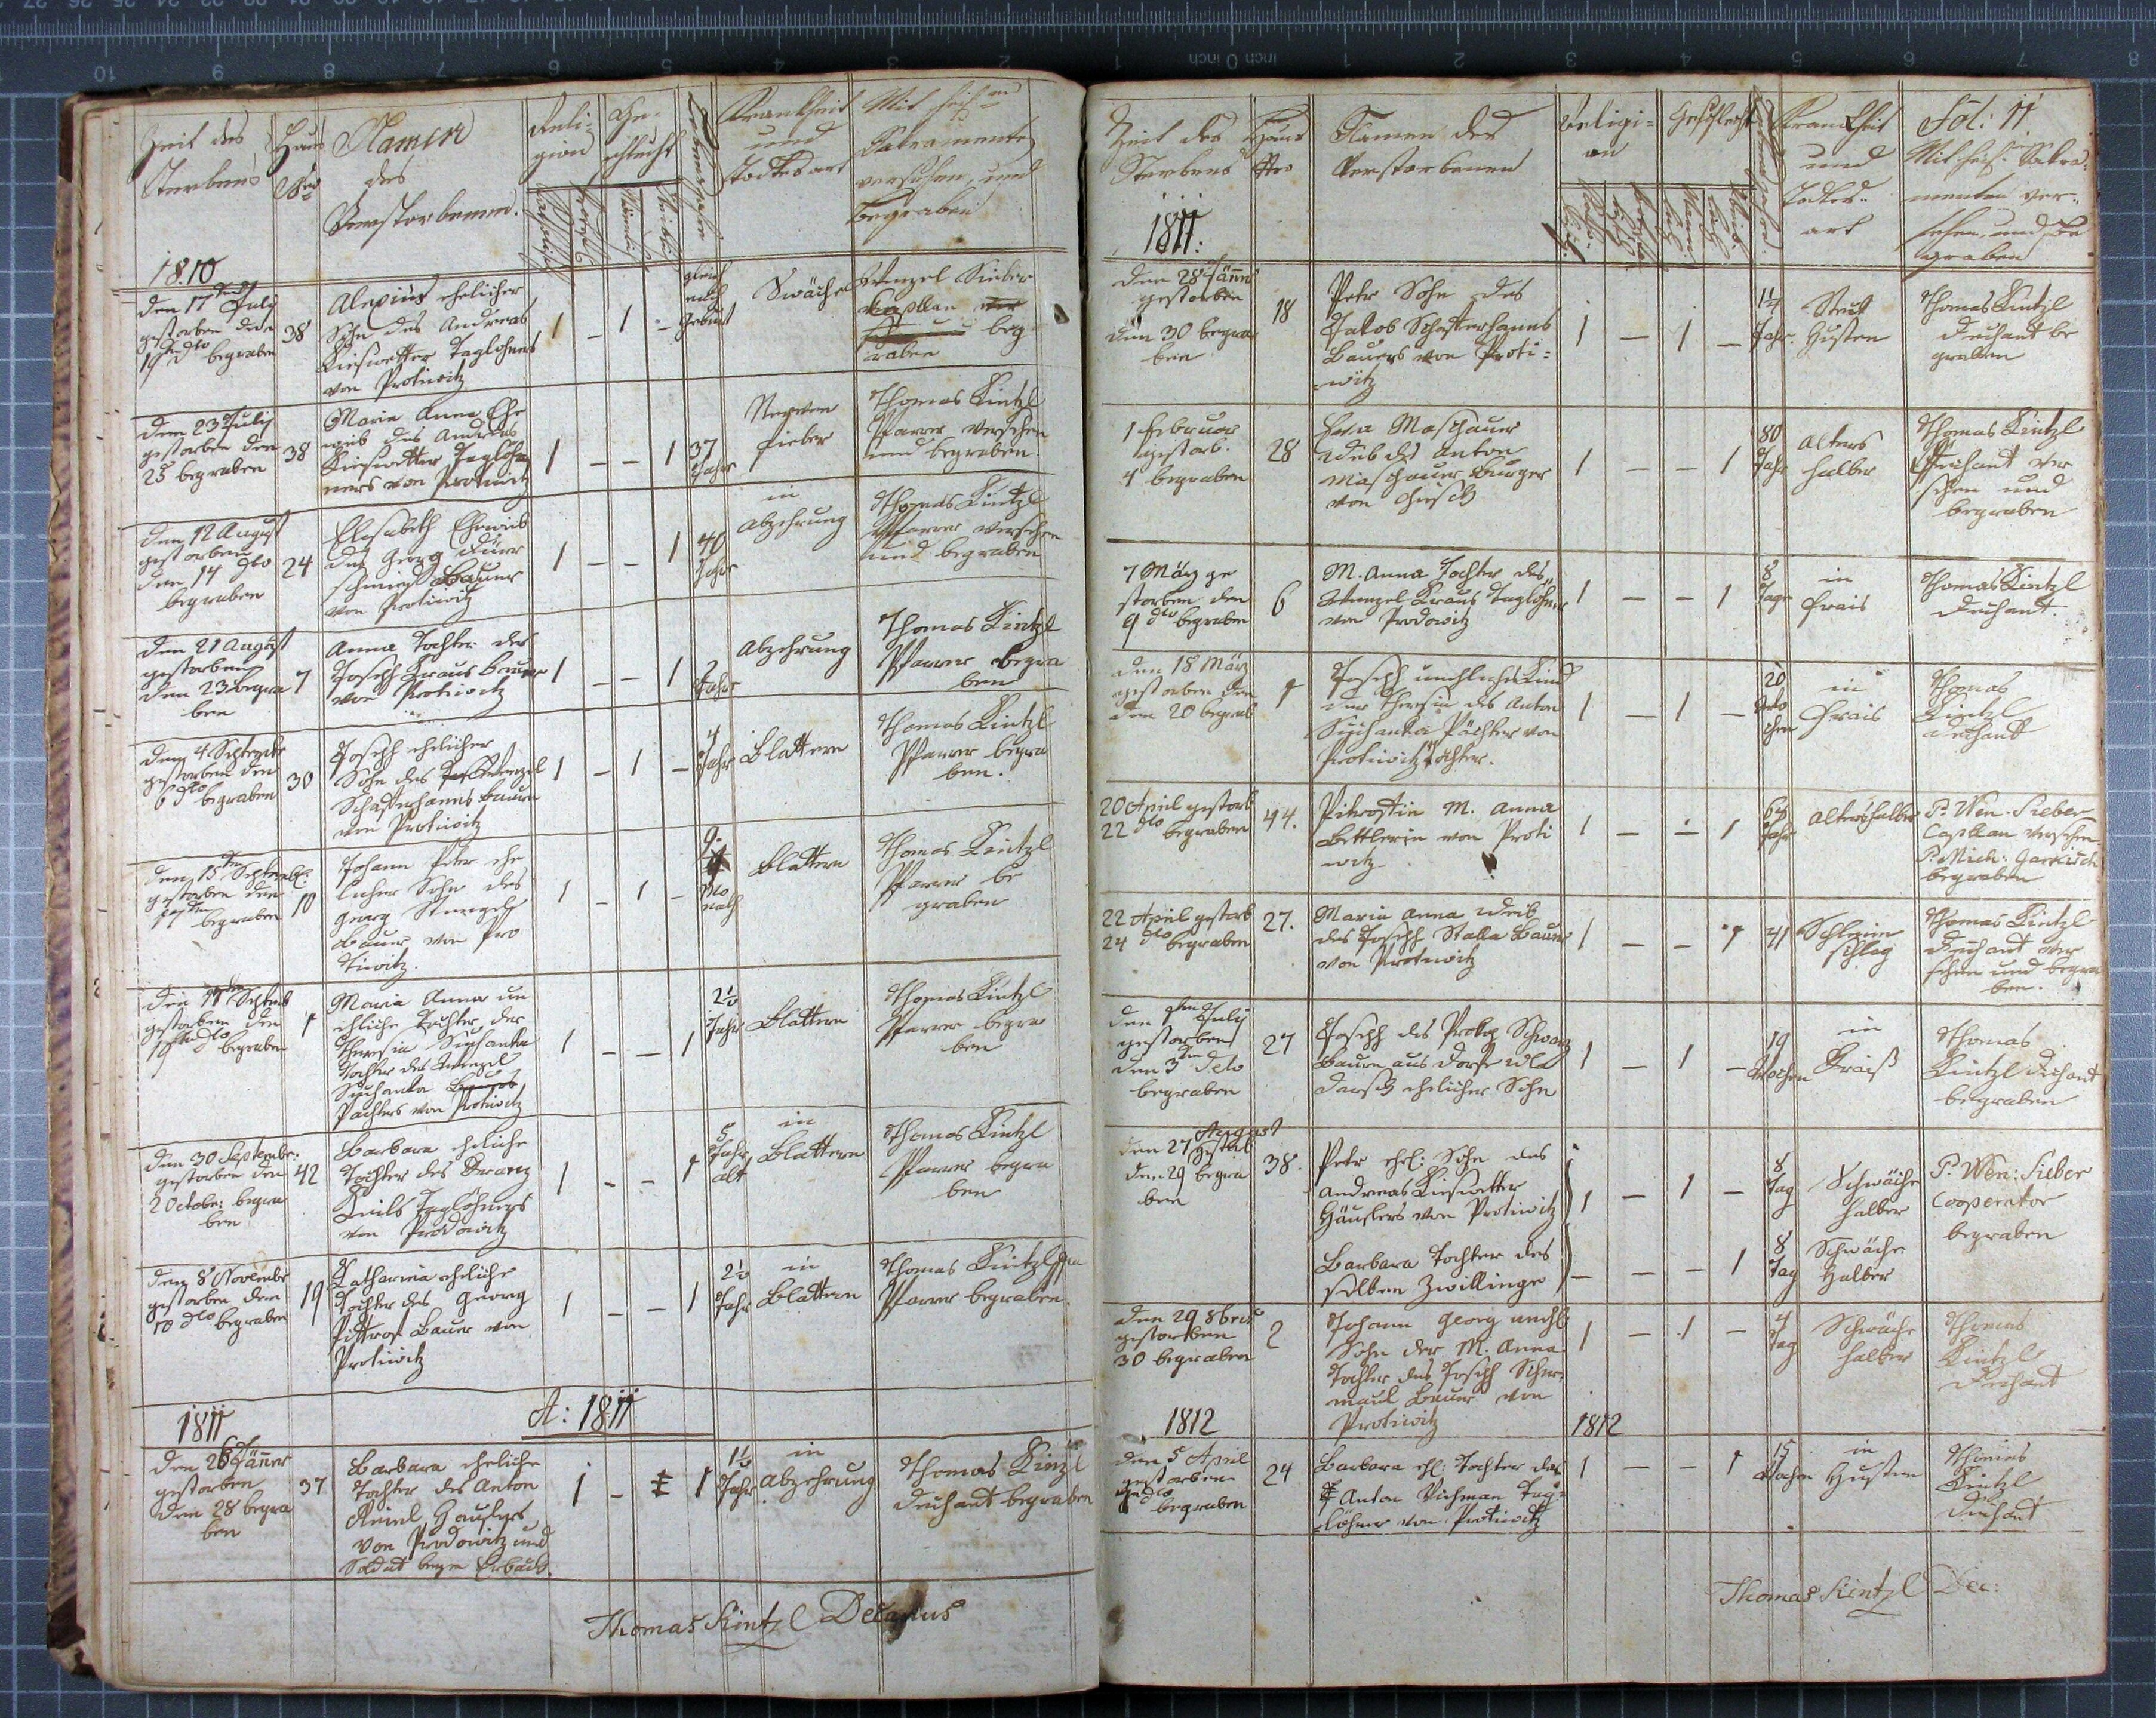 Zeit des
Sterbens
Haus
Nro
Namen
des
Verstorbenen.
Reli-
gion
Ge-
schlecht
Krankheit
und
Todtesart
Mit heil.
Sakramenten
versehen, und
begraben
1810
den 17 July
gestorben den
19 dto begraben
38
Alexius ehelicher
Sohn des Andreas
Kieswetter Taglohners
von Protiwitz
1 – 1 –
gleich
nach
Geburt
Swäche
Wenzel Sieber
Kapllan
beg
raben
den 23 July
gestorben den
25 begraben
38
Maria Anna Ehe
weib des Andreas
Kieswetter Tagloh
ners von Protiwitz
1 – – 1
37
Jahr
Nerven
fieber
Thomas Kintzl
Pfarrer versehen
und begraben
den 12 August
gestorben
den 14 dto
begraben
24
Elisabeth Eheweib
des Georg
Bauers
von Protiwitz
1 – – 1
40
Jahr
in
abzehrung
Thomas Kintzl
Pfarrer versehen
und begraben
den 21 August
gestorben
den 23 begra
ben
7
Anna Tochter des
Joseph Kraus Bauer
von Protiwitz
1 – – 1
2
Jahr
Abzehrung
Thomas Kintzl
Pfarrer begra
ben
den 4 Septembr
gestorben den
6 dto begraben
30
Joseph ehelicher
Sohn des Wenzel
Schafferhanns Bauern
von Protiwitz
1 – 1 –
4
Jahr
Blattern
Thomas Kintzl
Pfarrer begra
ben.
den 15 Septemb.
gestorben den
17 begraben
10
Johann Peter ehe
licher Sohn des
Georg Stengel
Bauer von Pro
tiwitz.
1 – 1 –
9
Mo
nath
Blattern
Thomas Kintzl
Pfarrer be
graben
den 17 Septemb
gestorben den
19 dto begraben
1
Maria Anna un
ehliche Tochter der
Theresia Suchanka
Tochter des Wenzel
Suchanka
Pachters von Protiwitz
1 – – 1
2½
Jahr
Blattern
Thomas Kintzl
Pfarrer begra
ben
den 30 Septembr:
gestorben den
2 Octobr: begra
ben
42
Barbara eheliche
Tochter des Franz
Taglöhners
von Prodowitz
1 – – 1
5
Jahr
alt
in
Blattern
Thomas Kintzl
Pfarrer begra
ben
den 8 Novembr
gestorben den
10 dto begraben
19
Katharina eheliche
Tochter des Georg
Pittros Bauer von
Protiwitz
1 – – 1
2½
Jahr
in
Blattern
Thomas Kintzl
Pfarrer begraben.
1811
A: 1811
den 26 Jänner
gestorben
den 28 begra
ben
37
Barbara eheliche
Tochter des Anton
Hauslers
von Prodowitz und
Soldat beym
1 – 1
1½
Jahr
in
abzehrung
Thomas Kinzl
Dechant begraben
Thomas Kintzl Decanus
Zeit des
Sterbens
Haus
Nro
Namen des
Verstorbenen
Religi=
on
Geschlecht
Krankheit
und
Todtes=
art
Fol: 11
Mit heil: Sakra
menten ver=
sehen, und be
graben
1811:
den 28 Jänner
gestorben
den 30 begra
ben
18
Petr Sohn des
Jakob Schafferhanns
Bauers von Proti=
=witz
1 – 1 –
1¼
Jahr.
Steck
Husten
Thomas Kintzl
Dechant be
graben
1 Februar
gestorb.
4 begraben
28
Maschauer
Weib des Anton
Maschauer Burger
von Chiesch
1 – – 1
80
Jahr
Alters
halber
Thomas Kintzl
Dechant ver
sehen und
begraben
7 März ge
storben den
9 dto begraben
6
M. Anna Tochter des
Wenzel Kraus Taglöhner
von Prodowitz
1 – – 1
8
Tage
in
Frais
Thomas Kintzl
Dechant.
den 18 März
gestorben den
den 20 begrab
1
Joseph unehliches Kind
der Theresia des Anton
Suchanka Pächter von
Protiwitz Tochter.
1 – 1 –
20
Wo
chen
in
Frais
Thomas
Kintzl
Dechant
20 April gestorb
22 dto begraben
44.
Pitrostin M. Anna
Bettlerin von Proti
witz
1 – – 1
64
Jahr
Altershalber
P: Wen. Sieber
Capllan versehen
P: Mich:
begraben
22 April gestorb
24 dto begraben
27.
Maria Anna Weib
des Joseph Stalla Bauer
von Protiwitz
1 – – 1
41
Schleim
schlag
Thomas Kintzl
Dechant ver
sehen und begra
ben.
den July
gestorben
den 3 dto
begraben
27
Joseph des Prokop Schwarz
Bauern aus Dorfe
ehelicher Sohn
1 – 1 –
19
Wochen
in
Fraiß
Thomas
Kintzl Dechant
begraben
den 27 August
gestorb
den 29 begra
ben
38.
Petr ehel: Sohn des
Andreas Kieswetter
Häuslers von Protiwitz
1 – 1 –
8
Tag
Schwäche
halber
P: Wen: Sieber
Cooperator
begraben
Barbara Tochter des
selben Zwillinge
– – – 1
8
Tag
Schwäche
Halber
den 29 8bris
gestorben
30 begraben
2
Johann Georg unehl:
Sohn der M. Anna
Tochter des Joseph Scher=
maul Bauer von
Protiwitz
1 – 1 –
4
Tag
Schwäche
halber
Thomas
Kintzl
Dechant
1812
1812
den 5 April
gestorben
dto
begraben
24
Barbara ehl: Tochter des
Anton Vichman Tag=
=löhner von Protiwitz
1 – – 1
15
Wochen
in
Husten
Thomas
Kintzl
Dechant
Thomas Kintzl Dec: